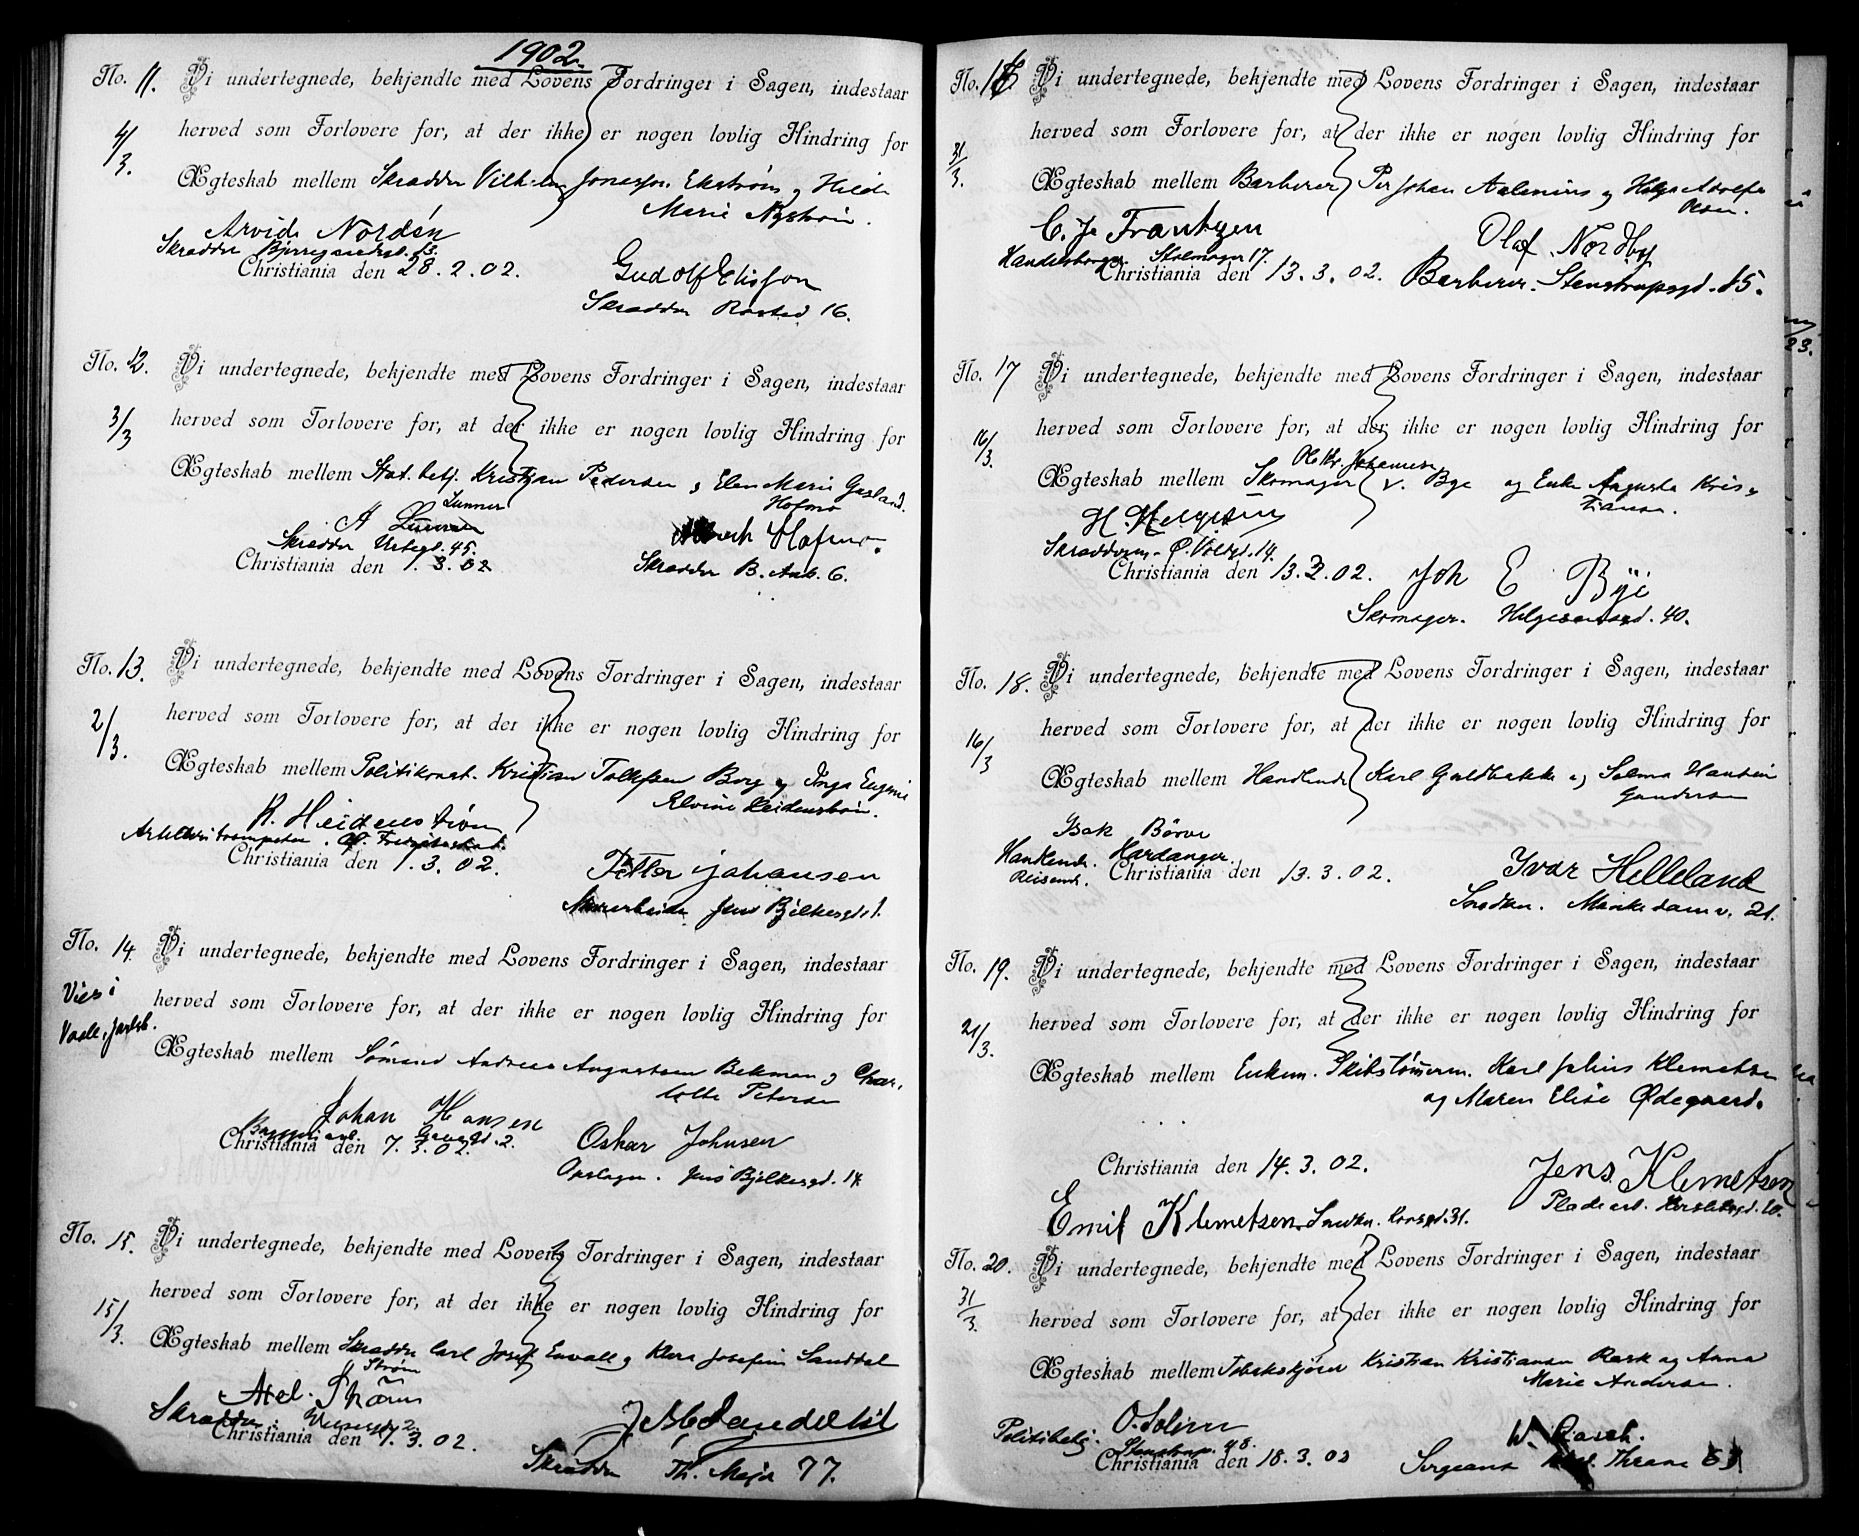 1902.
No. 11. Vi undertegnede, bekjendte med Lovens Fordringer i Sagen, indestaar
4/3. herved som Forlovere for, at der ikke er nogen lovlig Hindring for
Ægteskab mellem Skrædder Vilhelm Ekström og Hilda
Marie Nyström.
Arvid Nordén
Skrædder
Christiania den 28.2.02.
Gudolf Elisson
Skrædder Rosted 16.
No. 12. Vi undertegnede, bekjendte med Lovens Fordringer i Sagen, indestaar
3/3 herved som Forlovere for, at der ikke er nogen lovlig Hindring for
Ægteskab mellem Stat. betj. Kristian Pedersen og Elen Marie Gusland
Hofmo
Lunner
A Lunner
Skrædder Urtegd. 45.
Christiania den 1.3.02
Hofmo.
Skrædder B. Ank. 6.
No. 13. Vi undertegnede, bekjendte med Lovens Fordringer i Sagen, indestaar
2/3. herved som Forlovere for, at der ikke er nogen lovlig Hindring for
Ægteskab mellem Politikonst. Kristian Tollefsen Borg og Inga Eugenie
Elvine Heidenstrøm.
R. Heidenstrøm
Artelleritrompeter.
Christiania den 1.3.02.
Petter Johansen
Jens Bjelkesgd 1.
No. 14. Vi undertegnede, bekjendte med Lovens Fordringer i Sagen, indestaar
Vies i
herved som Forlovere for, at der ikke er nogen lovlig Hindring for
Vaale, Jarlsb.
Ægteskab mellem Sømand Andreas Augustsen Bekman og Char-
lotte Petersen
Johan Hansen
Christiania den 7.3.02.
Oskar Johnsen
Opslager. Jens Bjelkesgd. 14
No. 15. Vi undertegnede, bekjendte med Lovens Fordringer i Sagen, indestaar
15/3. herved som Forlovere for, at der ikke er nogen lovlig Hindring for
Ægteskab mellem Skrædder Carl Josef Envall og Klara Josefine Sanddal
Strøm
Axel. Strøm
Skrædder.
Christiania den 7.3.02.
Skrædder Th. Mejer 77.
No. 16 Vi undertegnede, bekjendte med Lovens Fordringer i Sagen, indestaar
31/3. herved som Forlovere for, at der ikke er nogen lovlig Hindring for
Ægteskab mellem Barberer Per Johan Aalenius og Helga Adolfa
Olsen.
C. J. Frantzen
Christiania den 13.3.02.
Olaf Nordby
Barberer. Stenstrupsgd. 15.
No. 17 Vi undertegnede, bekjendte med Lovens Fordringer i Sagen, indestaar
16/3. herved som Forlovere for, at der ikke er nogen lovlig Hindring for
Ole Kr. Johannesen
Ægteskab mellem Skomager v. Bye og Enke Augusta Kris-
tiansen.
Skrædderm. Ø. Voldgd. 14.
Christiania den 13.3.02.
Joh E Bye
Skomager. Helgesensgd. 40.
No. 18. Vi undertegnede, bekjendte med Lovens Fordringer i Sagen, indestaar
16/3 herved som Forlovere for, at der ikke er nogen lovlig Hindring for
Ægteskab mellem Handlende Karl Guldbakke og Selma Hansine
Gundersen
Isak Børve
Handlende. Hardanger.
Christiania den 13.3.02.
Ivar Helleland
Snedker. Munkedamsv. 21.
No. 19. Vi undertegnede, bekjendte med Lovens Fordringer i Sagen, indestaar
21/3. herved som Forlovere for, at der ikke er nogen lovlig Hindring for
Ægteskab mellem Enkem. Skibstømrerm. Karl Julius Klemetsen
og Maren Elise Ødegaard.
Christiania den 14.3.02.
Jens Klemetsen
Pladearb.
Emil Klemetsen Snedker.
No. 20. Vi undertegnede, bekjendte med Lovens Fordringer i Sagen, indestaar
31/3. herved som Forlovere for, at der ikke er nogen lovlig Hindring for
Ægteskab mellem Kristian Kristiansen Rask og Anna
Marie Andersen.
O. Solum
Politibetj. Stenstrup. 48.
Christiania den 18.3.02
W. Rasch.
Sergeant Thrane